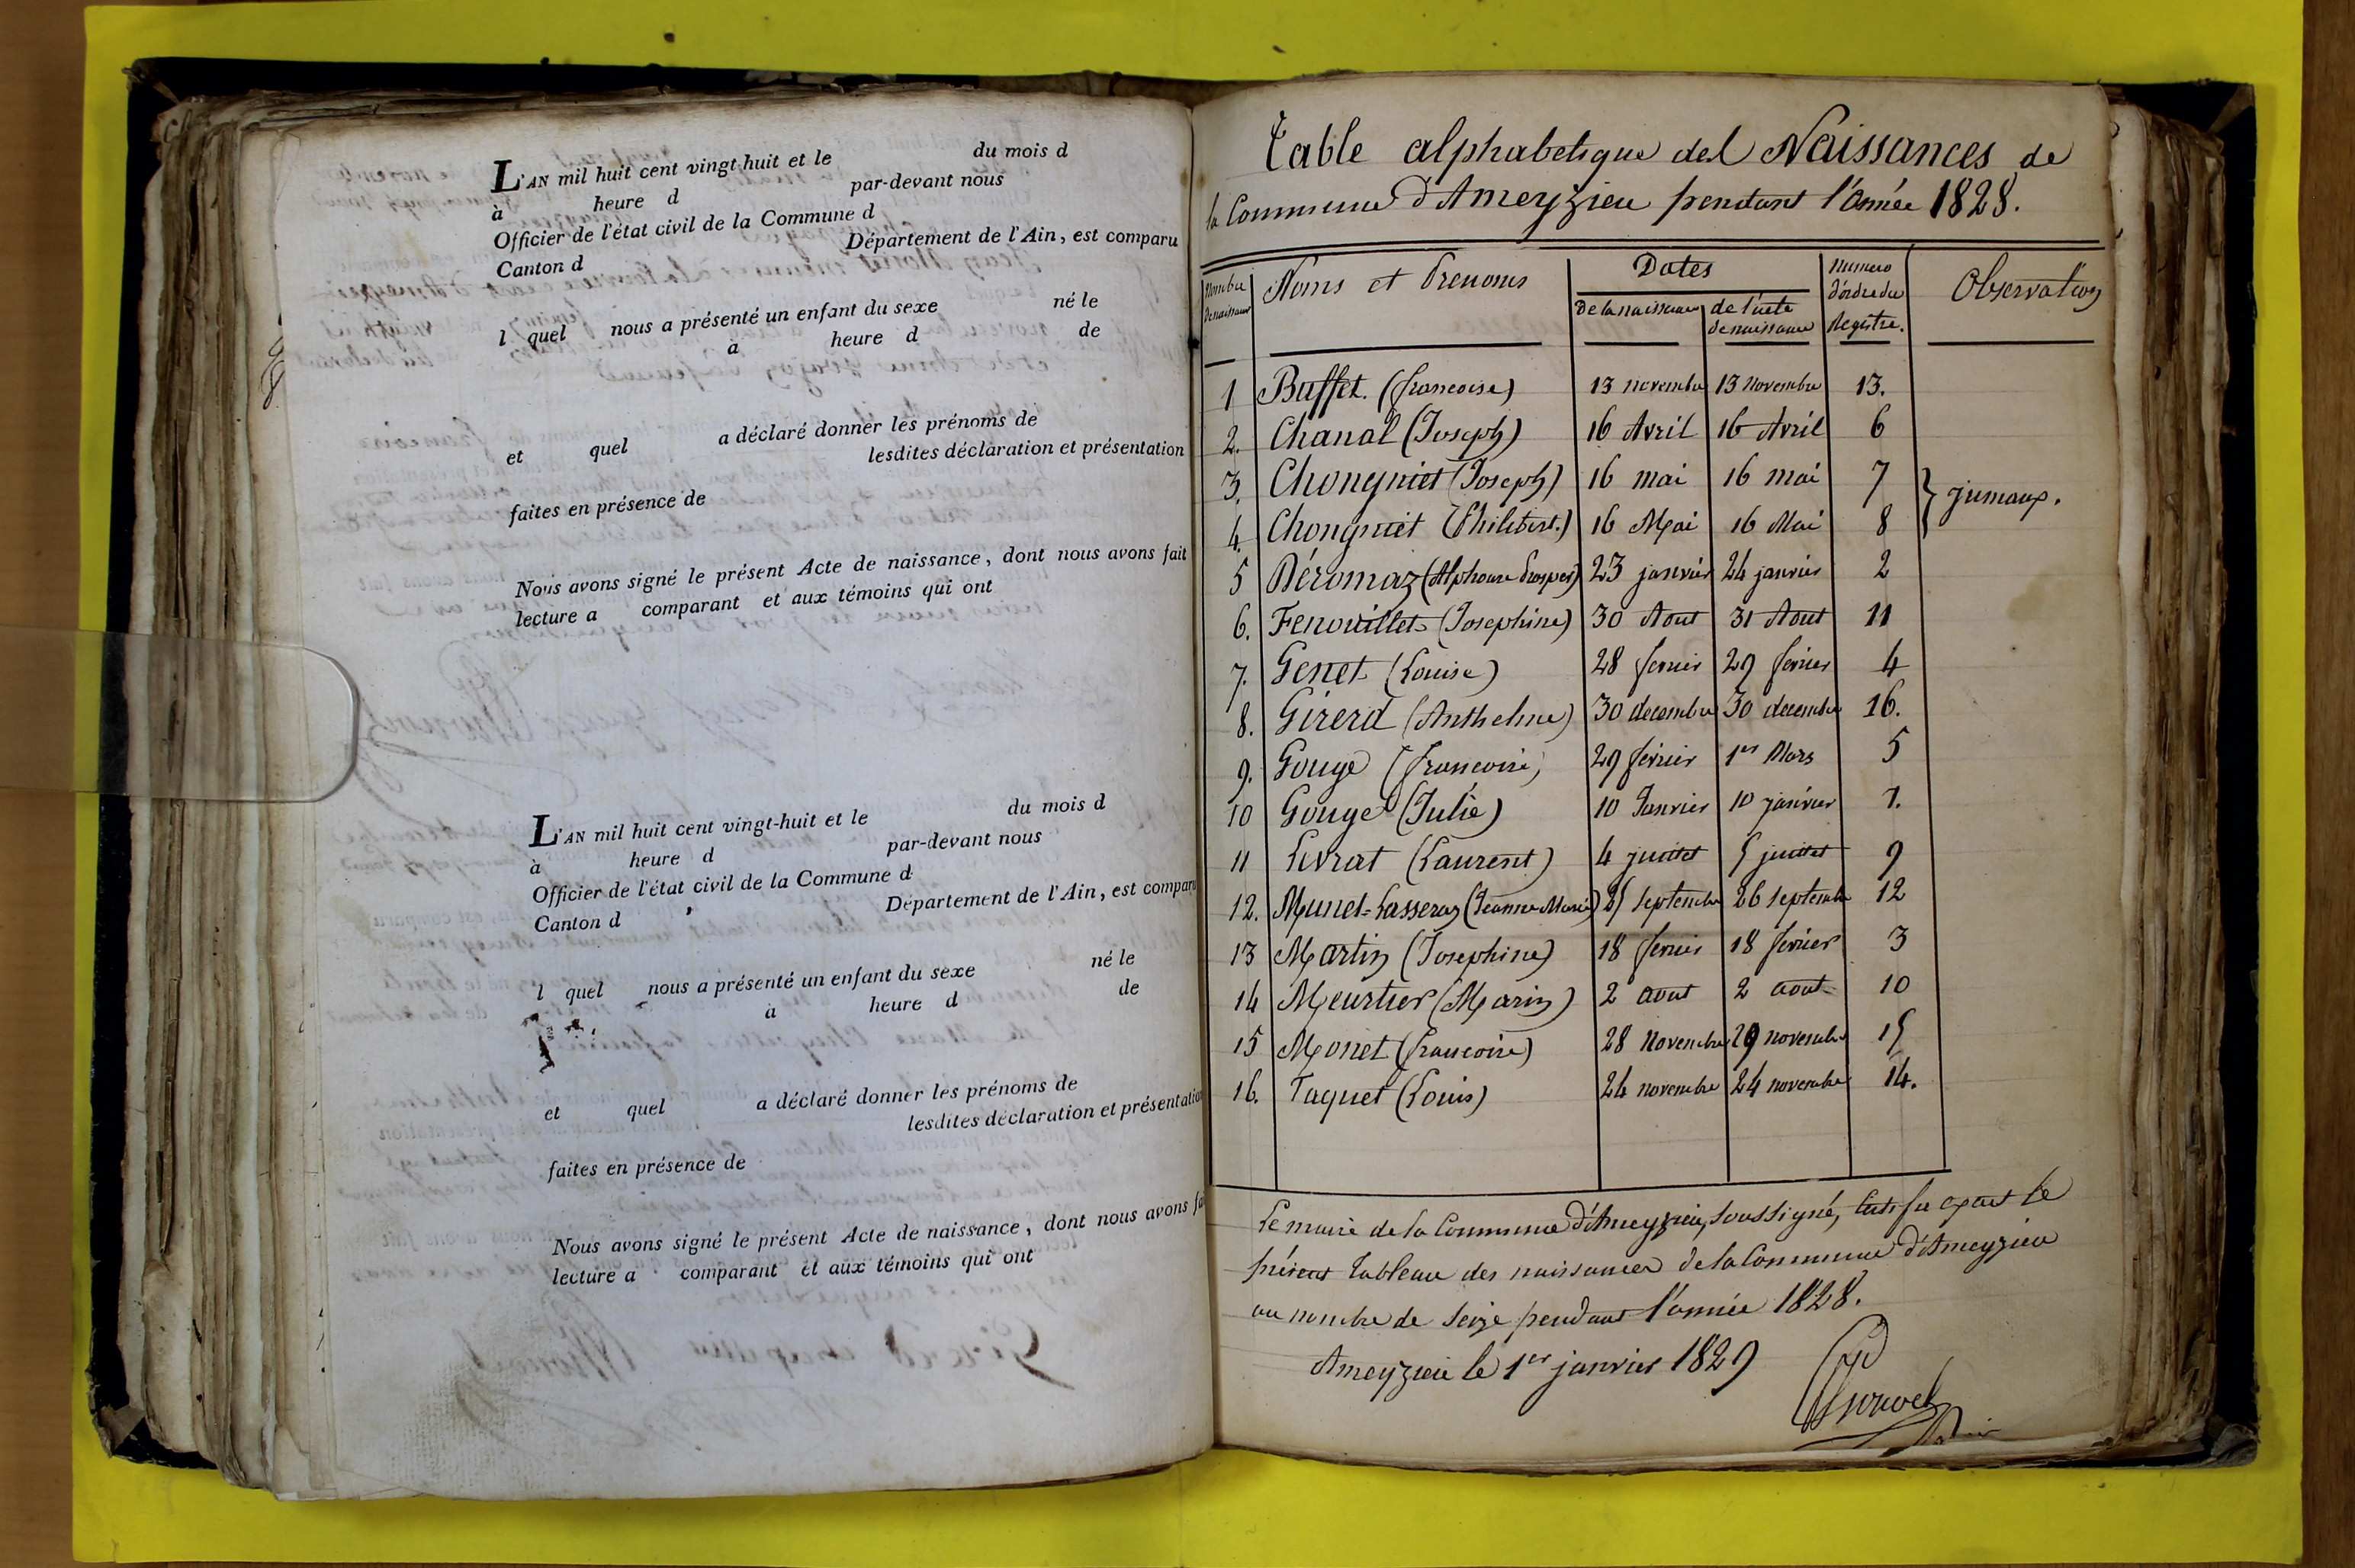 L'AN mil huit cent vingt-huit et le du mois d
à heure d par-devant nous
Officier de l'état civil de la Commune d
Canton d Département de l'Ain, est comparu
l quel nous a présenté un enfant du sexe né le
à heure d de
et quel a déclaré donner les prénoms de
lesdites déclaration et présentation
faites en présence de
Nous avons signé le présent Acte de naissance, dont nous avons fait
lecture a comparant et aux témoins qui ont
L'AN mil huit cent vingt-huit et le du mois d
à heure d par-devant nous
Officier de l'état civil de la Commune d
Canton d Département de l'Ain, est comparu
l quel nous a présenté un enfant du sexe né le
à heure d de
et quel a déclaré donner les prénoms de
lesdites déclaration et présentation
faites en présence de
Nous avons signé le présent Acte de naissance, dont nous avons fai
lecture a comparant et aux témoins qui ont
Table alphabetique des Naissances de
la Commune d'Ameyzieu pendant l'année 1828.
Nombre de naissances Noms et Prenoms Dates de la naissance de l'acte de naissance Numero d'ordre du Registre. Observations
1 Buffet. (francoise) 13 novembre 13 Novembre 13.
2. Chanal (Joseph) 16 Avril 16 Avril 6
3. Chongniet (Joseph) 16 mai 16 mai 7 } jumaux.
4. Chongniet (Philibert.) 16 Mai 16 Mai 8
5 Déromaz (Alphonse Prosper) 23 janvier 24 janvier 2
6. Fenouillet (Josephine) 30 Aout 31 Aout 11
7. Genet (Louise) 28 fevrier 29 fevrier 4
8. Girerd (Anthelme) 30 decembre 30 decembre 16.
9. Gouge (francoise) 29 février 1er Mars 5
10 Gouge (Julie) 10 Janvier 10 janvier 1.
11 Livrat (Laurent) 4 juillet 5 juillet 9
12. Munet=Lasseraz (Jeanne Marie) 25 septembre 26 septembre 12
13 Martin (Josephine) 18 fevrier 18 fevrier 3
14 Meurtier (Marin) 2 aout 2 aout 10
15 Monet (francoise) 28 Novembre 29 novembre 15
16. Taquet (Louis) 24 novembre 24 novembre 14.
Le maire de la Commune d'Ameyzieu, soussigné, Certifie exact le
présent tableau des naissances de la Commune d'Ameyzieu
au nombre de seize pendant l'année 1828.
Ameyzieu le 1er janvier 1829